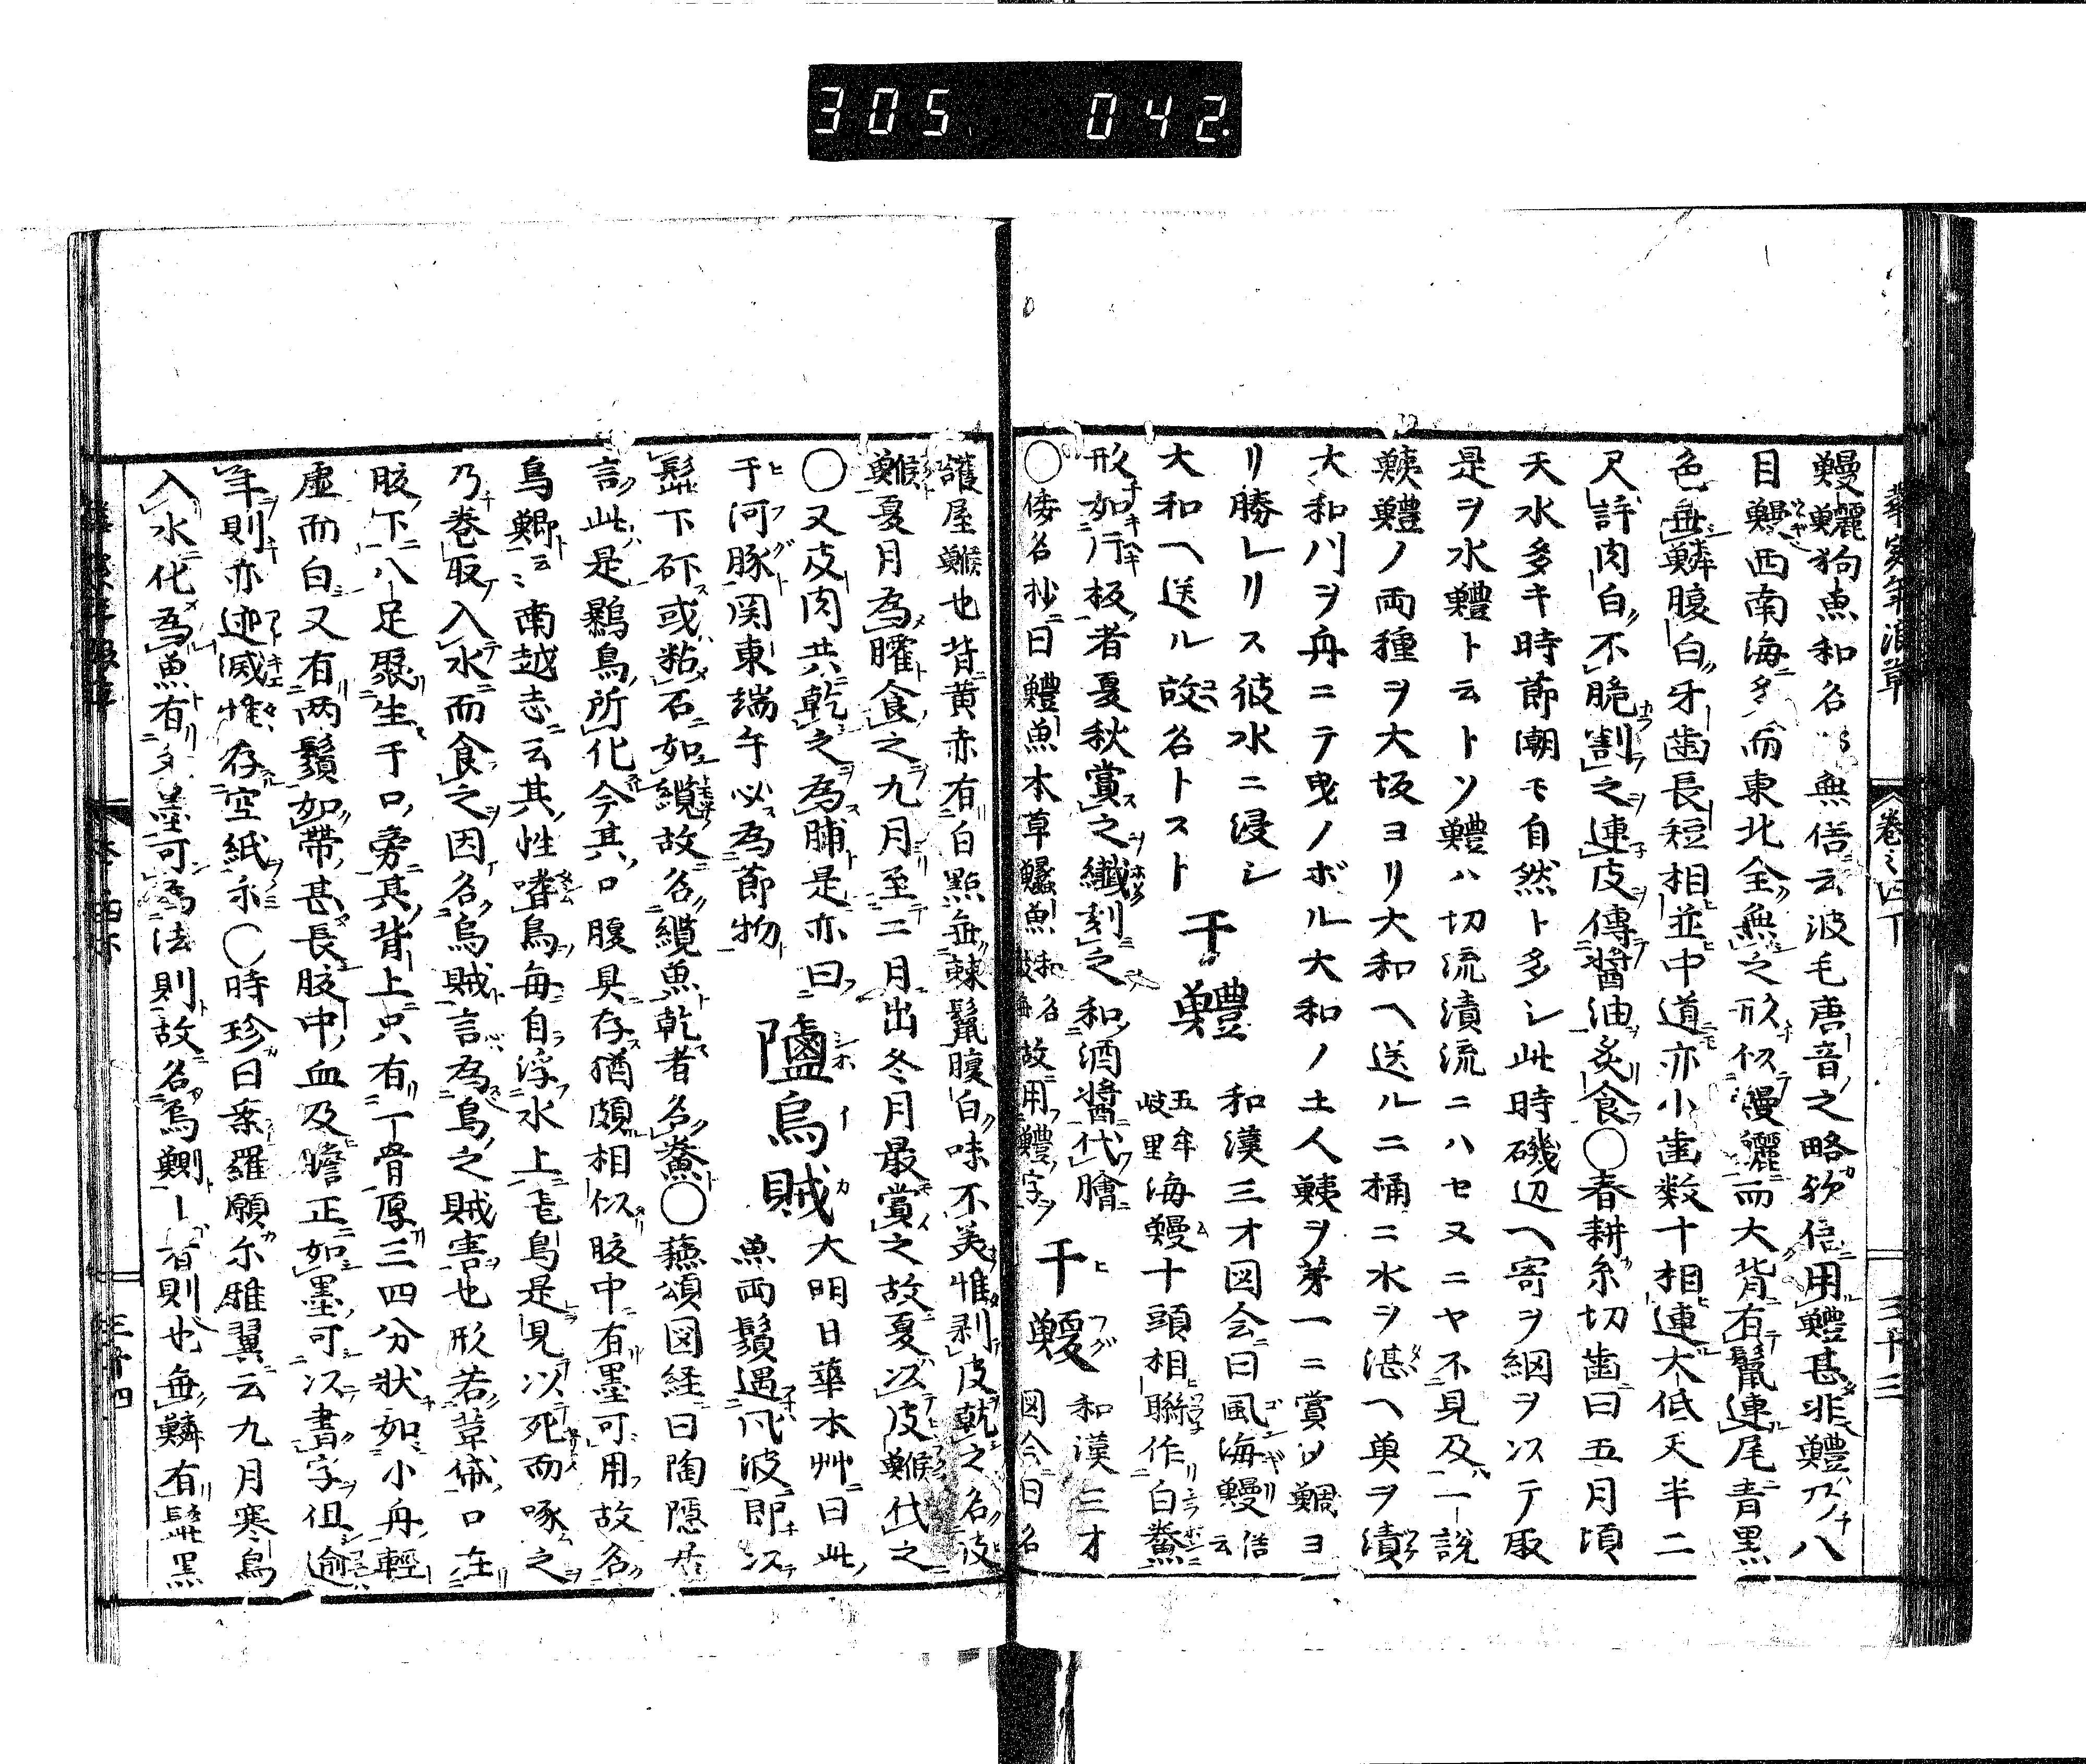 305 042
巻之四下
三十三
鰻鱺狗魚和名 無俗云波毛唐音之略欤信用鱧甚非鱧乃八
目鰻西南海多而東北全無之形似鰻鱺而大背有鬣連尾青黒
色無鱗腹白牙歯長短相並中道亦小歯数十相連大低尺半二
尺許肉白不脆割之連皮傳醤油炙食〇春耕糸切歯曰五月頃
天水多キ時節潮モ自然ト多シ此時磯辺ヘ寄ヲ網ヲ以テ取
是ヲ水鱧ト云トソ鱧ハ切流漬流ニハセヌニヤ不見及一説
鮧鱧ノ両種ヲ大坂ヨリ大和ヘ送ルニ桶ニ水ヲ湛ヘ魚ヲ漬
大和川ヲ舟ニテ曳ノボル大和ノ土人鮧ヲ第一ニ賞メ鯛ヨ
リ勝レリス彼水ニ浸シ
大和ヘ送ル故名トスト
干鱧
和漢三才図会曰風海鰻俗云
五牟岐里海鰻十頭相聯作白鯗
形如行板者夏秋賞之繊刻之和酒醤代膾
〇倭名抄曰鱧魚本草
故用鱧字
干鰒
和漢三才
図会曰名
護屋鯸也背黄赤有白點無棘鬣腹白味不美惟剥皮乾之名皮
鯸夏月為臛食之九月至二月出冬月最賞之故夏以皮鯸代之
〇又皮肉共乾之為脯是亦曰
干河豚関東端午必為節物
鹽烏賊
大明日華本艸曰此
魚両鬚遇風波即以
髭下矴或粘石如纜故名纜魚乾者名鯗〇蘓頌図経曰陶隠居
言此是鸔烏所化今其口腹具存猶頗相似腹中有墨可用故名
烏鰂云々南越志云其性嗜烏毎自浮水上飛烏是見以死而啄之
乃巻取入水而食之因名烏賊言為烏之賊害也形若葦俗口在
腹下八足聚生于口旁其背上只有一骨厚三四分状如小舟軽
虚而白又有両鬚如帯甚長腹中血及膽正如墨可以書字但逾
年則亦迹滅惟存空紙尓〇時珍曰案羅願尓雅翼云九月寒烏
入水化為魚有文墨可為法則故名烏鰂ー者則也無鱗有髭黒
三十四